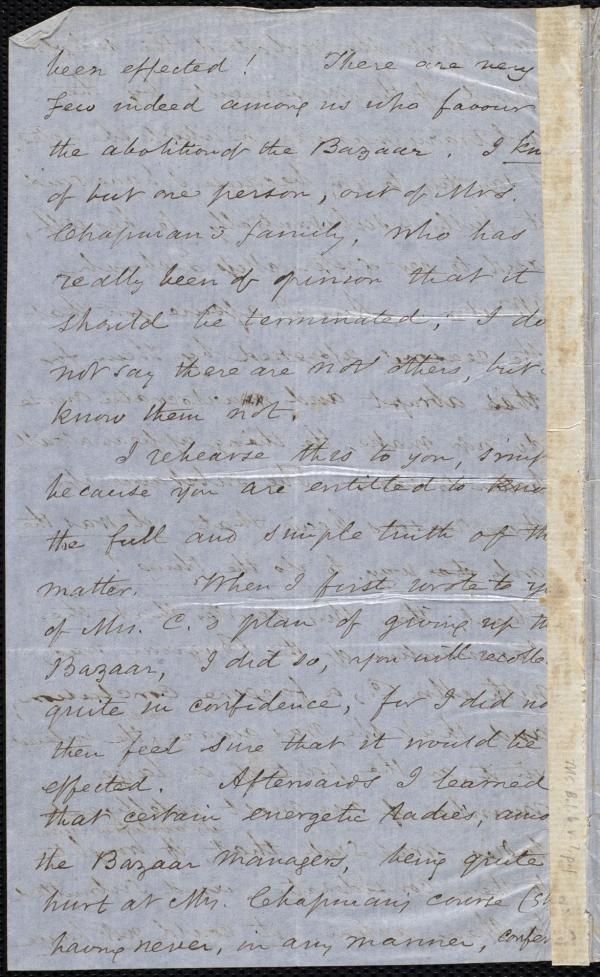 been effected! There are very
few indeed among us who favour
the abolition of the Bazaar. I kn
of but one person, out of Mrs.
Chapman's family, who has
really been of opinion that it
should be terminated; - I do
not say there are not others, but
know them not.
I rehearse this to you, simp
because you are entitled to kno
the full and simple truth of th
matter. When I first wrote to y
of Mrs. C.'s plan of giving up th
Bazaar, I did so, you will recolle
quite in confidence, for I did no
then feel sure that it would be
effected. Afterwards I learned
that certain energetic ladies, amo
the Bazaar managers, being quite
hurt at Mrs. Chapman's course (sh
having never, in any manner, confer